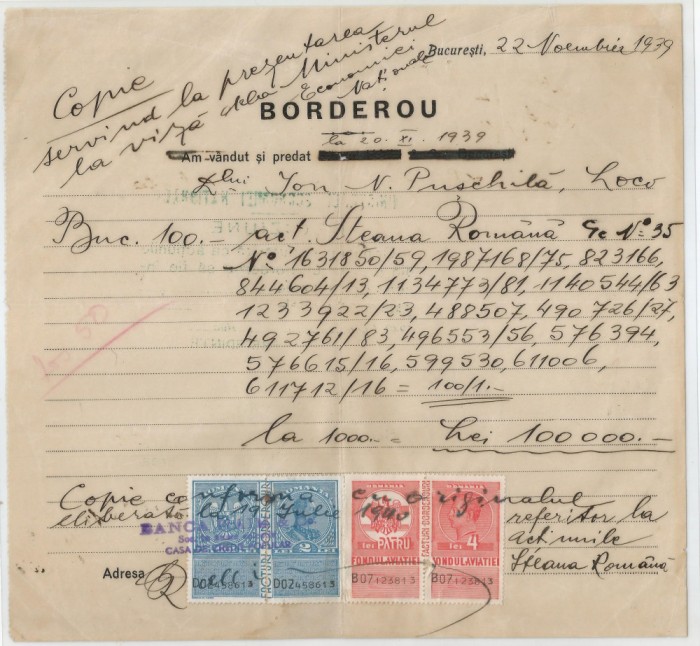 Copie
servind la prezentarea
la viză dela Ministerul
Economiei
Naționale
București, 22 Noembrie 1939
BORDEROU
la 20. XI. 1939
Am vândut și predat
Dlui Ion N. Pușchilă, Loco
Buc. 100.- act. Steana Română Gc No 35
No 1631850/59, 1987168/75, 823166,
844604/13, 1134773/81, 1140544/63
1233922/23, 488507, 490726/27,
492761/83, 496553/56, 576394,
576615/16, 599530, 611006,
611712/16 = 100/1.-
la 1000.- = Lei 100000.-
Copie conformă cu originalul
eliberată la 19 Iulie 1940 referitor la
acțiunile
Steana Română
BANCA
CASA DE
ROMANIA
ROMANIA
2
FACTURI
lei PATRU
lei 4
FACTURI-BORDEROURI
FONDUL AVIATIEI
FONDUL AVIATIEI
D02458613
D02458613
B07123813
B07123813
Adresa